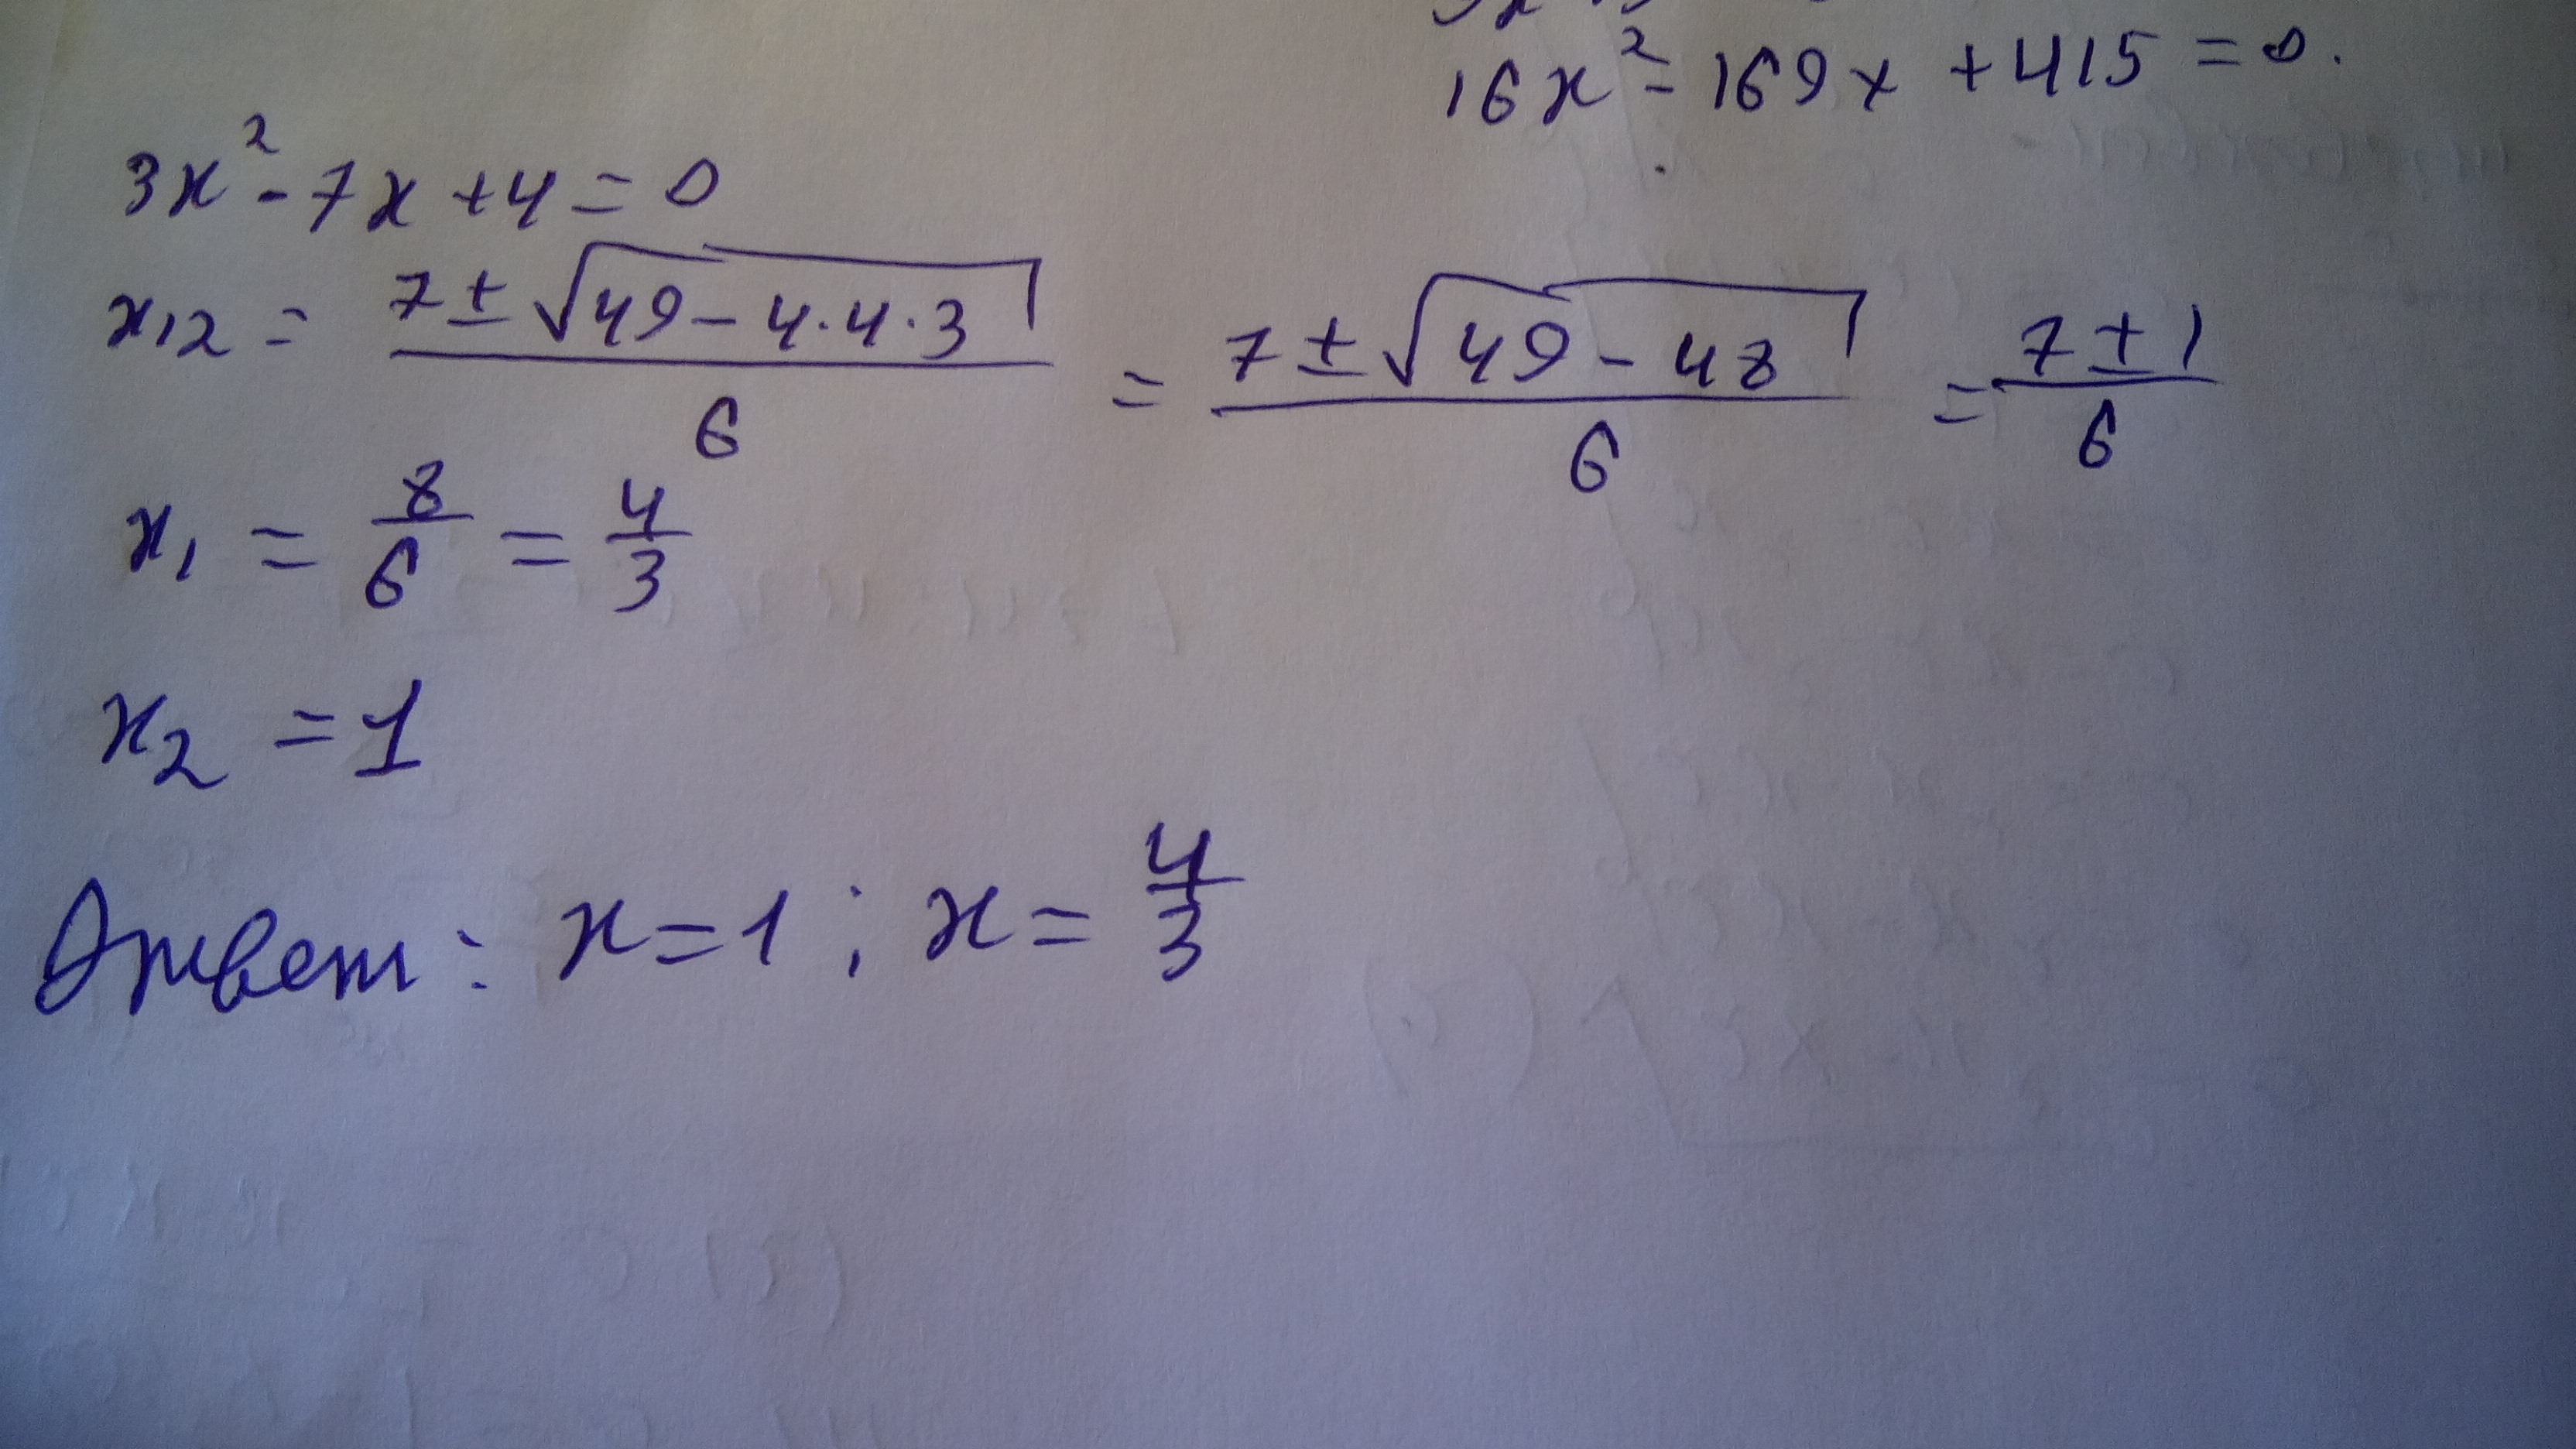 16x² - 169x + 415 = 0.
3x² - 7x + 4 = 0
x₁₂ = (7 ± √(49 - 4·4·3))/6 = (7 ± √(49 - 48))/6 = (7 ± 1)/6
x₁ = 8/6 = 4/3
x₂ = 1
Ответ: x = 1; x = 4/3